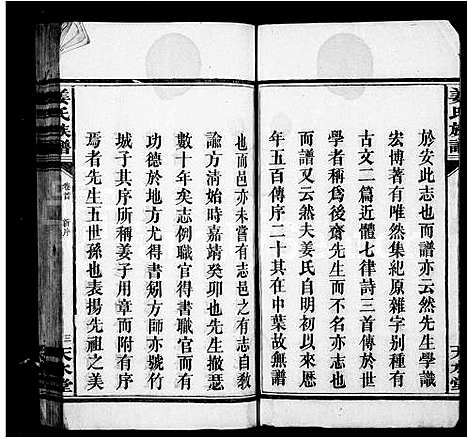 姜氏族譜
天水堂
於安此志也而譜亦云然先生學識
宏博著有唯然集紀原雜字均湮沒
古文二篇近體七律詩三首傳於世
學者稱爲後齋先生而不云名何居
而譜又云然夫姜氏自明初以來歷
年五百傳序二十其在中葉故無譜
也而邑亦未嘗有志邑之有志自教
諭方清始時嘉靖癸卯也先撤瑟
數十年矣志例職官得書職官而有
功德於地方尤得書矧方師亦號竹
城子其序所稱姜子用章當有序
焉者先生五世孫也表揚先祖之美
姜氏族譜
卷首
新序
三
天水堂